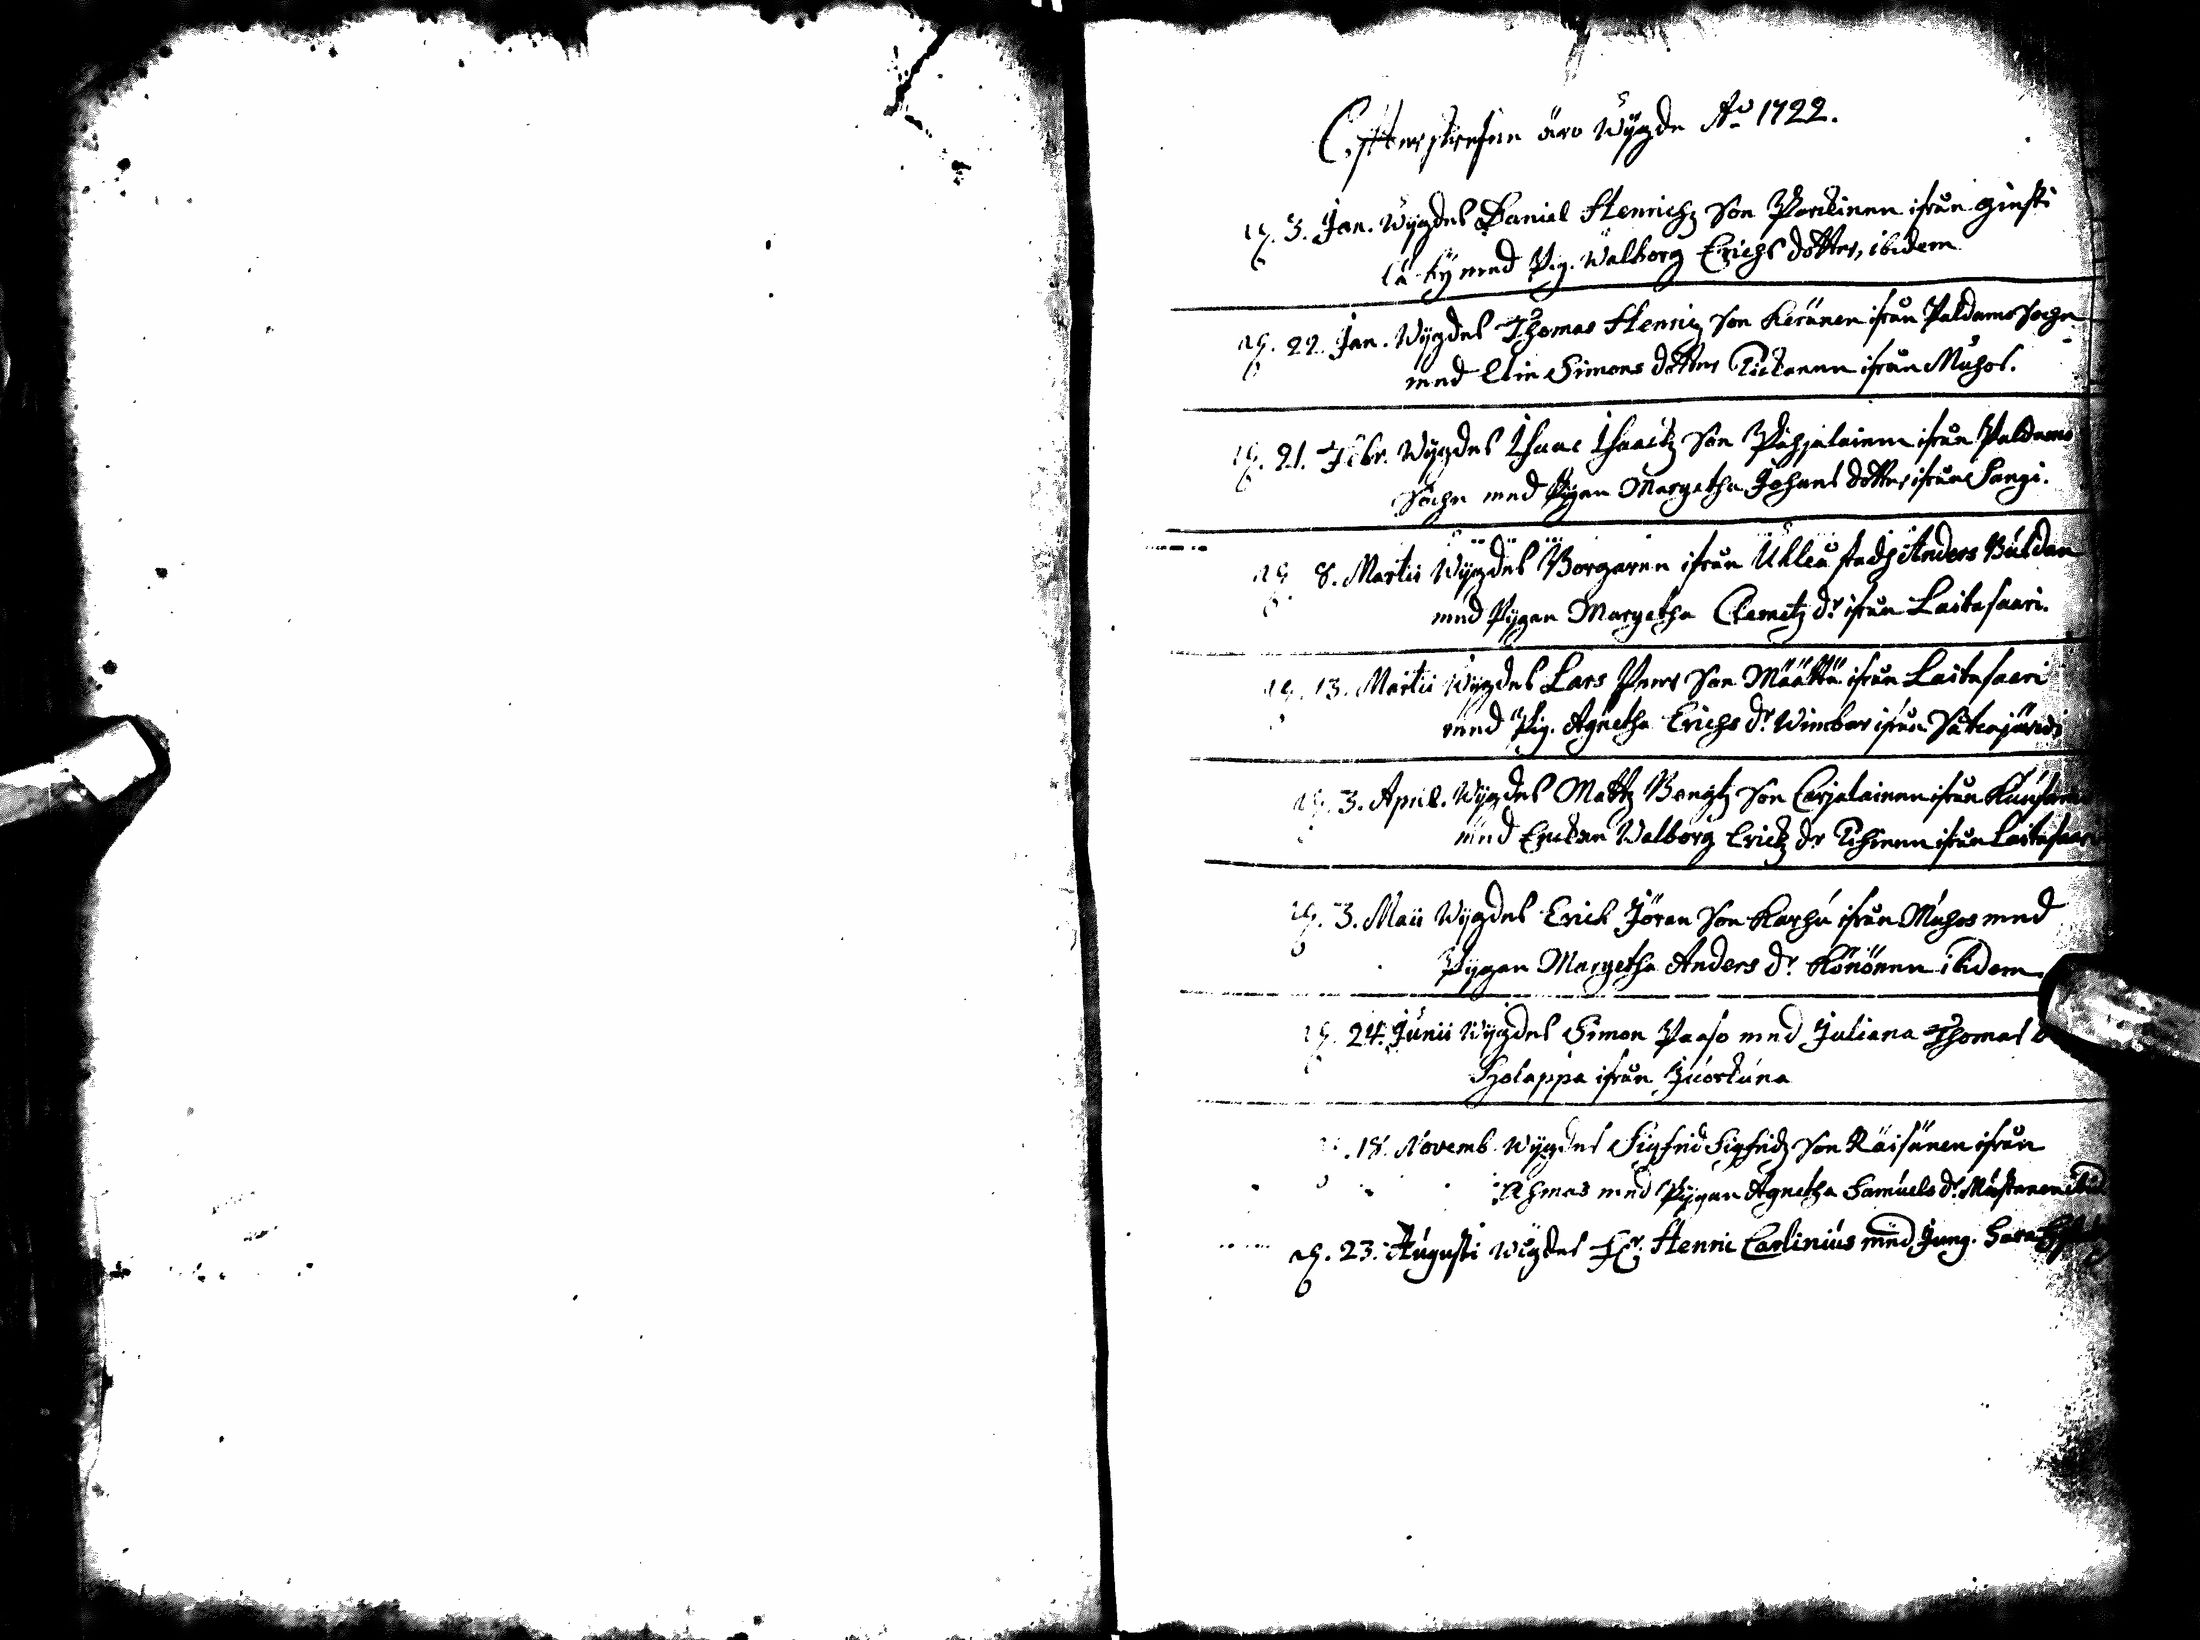 Effterskrefne äro Wÿgde Ao 1722.
d. 3. Jan. Wÿgdes Daniel Henrichz Son Parckinen ifrån
by med Pig. Walborg Erichs dotter, ibidem
d. 22. Jan. Wÿgdes Thomas Henriz Son Keränen ifrån Paldamo Sochn
med Elin Simons dotter Tickanen ifrån Muhos.
d. 21. Febr. Wÿgdes Isaac Isaacz Son Påhjalainen ifrån Paldamo
Sochn med Pigan Margetha Johans dotter ifrån Sangi.
d. 8. Martii Wÿgdes Borgaren ifrån Uhleå stadh Anders
med Pÿgan Margetha Clemetz dr ifrån Laitasaari.
d. 13. Martii Wÿgdes Lars Pers Son Määttä ifrån Laitasaari
med Pig. Agnetha Erichs dr ifrån
d. 3. April. Wÿgdes Mattz Bengtz Son Carjalainen ifrån
med Enckan Walborg Erickz dr Tihinen ifrån Laitasaari
d. 3. Maii Wÿgdes Erich Jöran Son Karhu ifrån Muhos med
Pÿgan Margetha Anders dr. Könönen ibidem
d. 24. Junii Wÿgdes Simon Paaso med Juliana Thomas
Holappa ifrån
d. 18. Novemb. Wÿgdes Sigfrid Sigfridz Son Räisänen ifrån
Ahmas med Pÿgan Agnetha Samuels dr Mustanen ibid
d. 23. Augusti Wÿgdes Hr. Henric Carlinius med Jung. Sara